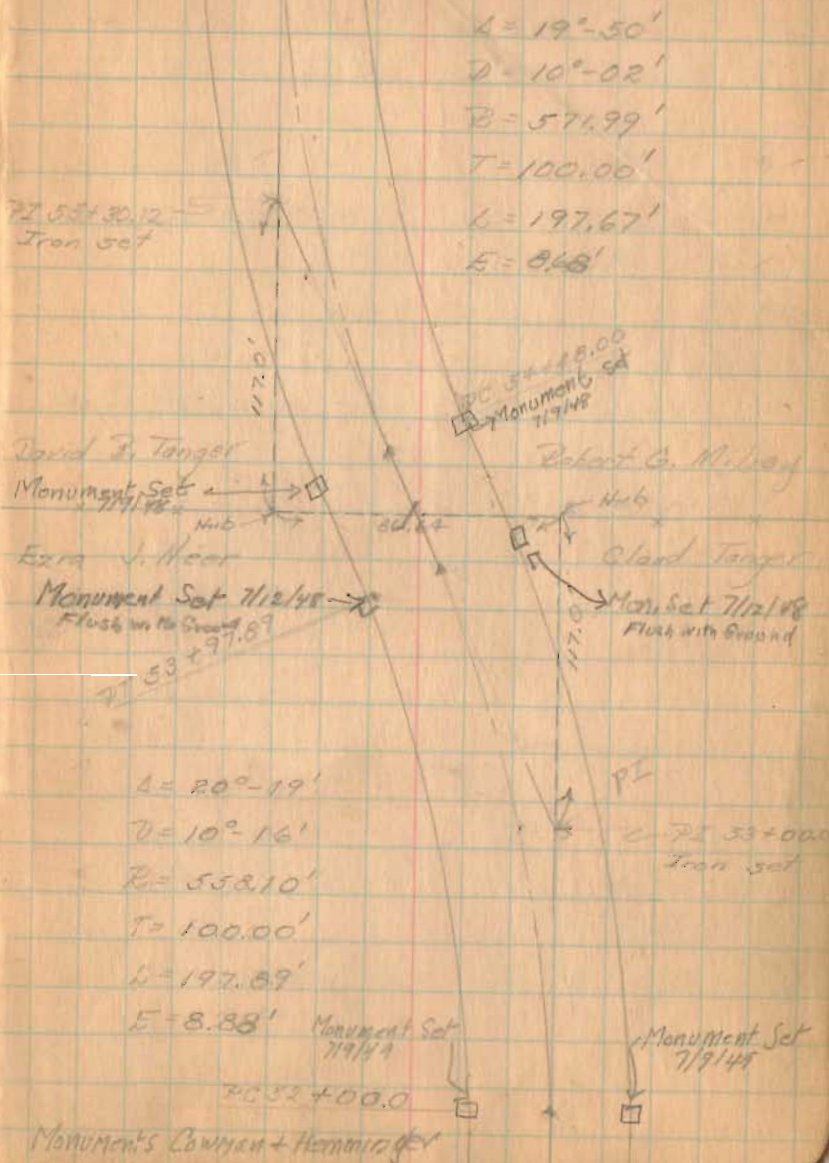 Δ = 19°-50'
D = 10°-02'
R = 571.99'
T = 100.00'
L = 197.67'
E = 8.68'
PI 55+30.12
Iron set
117.0'
PC 54+48.00
Monument set
7/9/48
David B. Tanger
Robert G.
Monument Set
7/9/48
Hub
Hub
Ezra J. Neer
Tanger
Monument Set 7/12/48
Flush with Ground
Mon. Set 7/12/48
Flush with Ground
PT 53+97.89
117.0'
Δ = 20°-19'
D = 10°-16'
R = 558.10'
T = 100.00'
L = 197.89'
E = 8.88'
PI
PI 53+00.0
Iron set
Monument Set
7/9/49
Monument Set
7/9/49
PC 52+00.0
Monuments Cowman + Hemminger